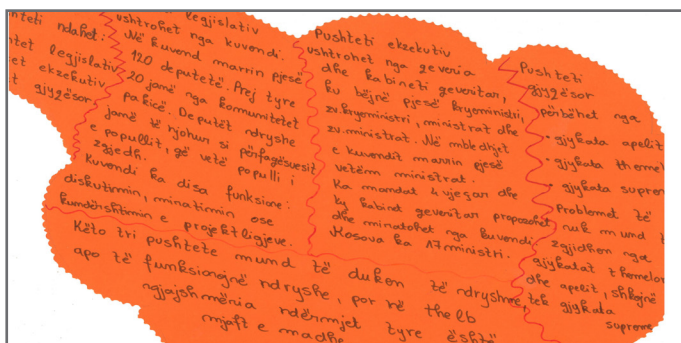 hteti ndahet:
htet legjislativ
et ekzekutiv
et gjyqësor
legjislativ
ushtrohet nga kuvendi.
Në kuvend marrin pjesë
120 deputetë. Prej tyre
20 janë nga komunitetet
pakicë. Deputët ndryshe
janë të njohun si përfaqësuesit
e popullit, që vetë populli i
zgjedh.
Kuvendi ka disa funksione:
diskutimin, miratimin ose
kundërshtimin e projektligjeve.
Pushteti ekzekutiv
ushtrohet nga qeveria
dhe kabineti qeveritar,
ku bëjnë pjesë kryeministri,
zv.kryeministri, ministrat dhe
zv.ministrat. Në mbledhjet
e kuvendit marrin pjesë
vetëm ministrat.
Ka mandat 4 vjeçar dhe
ky kabinet qeveritar propozohet
dhe miratohet nga kuvendi.
Kosova ka 17 ministri.
Pushteti
gjyqësor
përbëhet nga
- gjykata apelit
- gjykata themel
- gjykata suprem
Problemet të
nuk mund t
zgjidhen nga
gjykatat themelor
dhe apelit, shkojnë
tek gjykata
supreme
Këto tri pushtete mund të duken të ndryshme,
apo të funksionojnë ndryshe, por në thelb
ngjajshmëria ndërmjet tyre është
mjaft e madhe